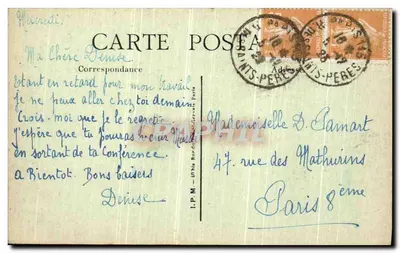 Mercredi
Ma Chère Denise
CARTE POSTALE
Correspondance
Etant en retard pour mon travail
Je ne peux aller chez toi demain
Crois-moi que je le regrette
J'espère que tu pourras venir
en sortant de ta Conférence
a Bientot. Bons baisers
Denise
Mademoiselle D. Pamart
47, rue des Mathurins
Paris 8ème